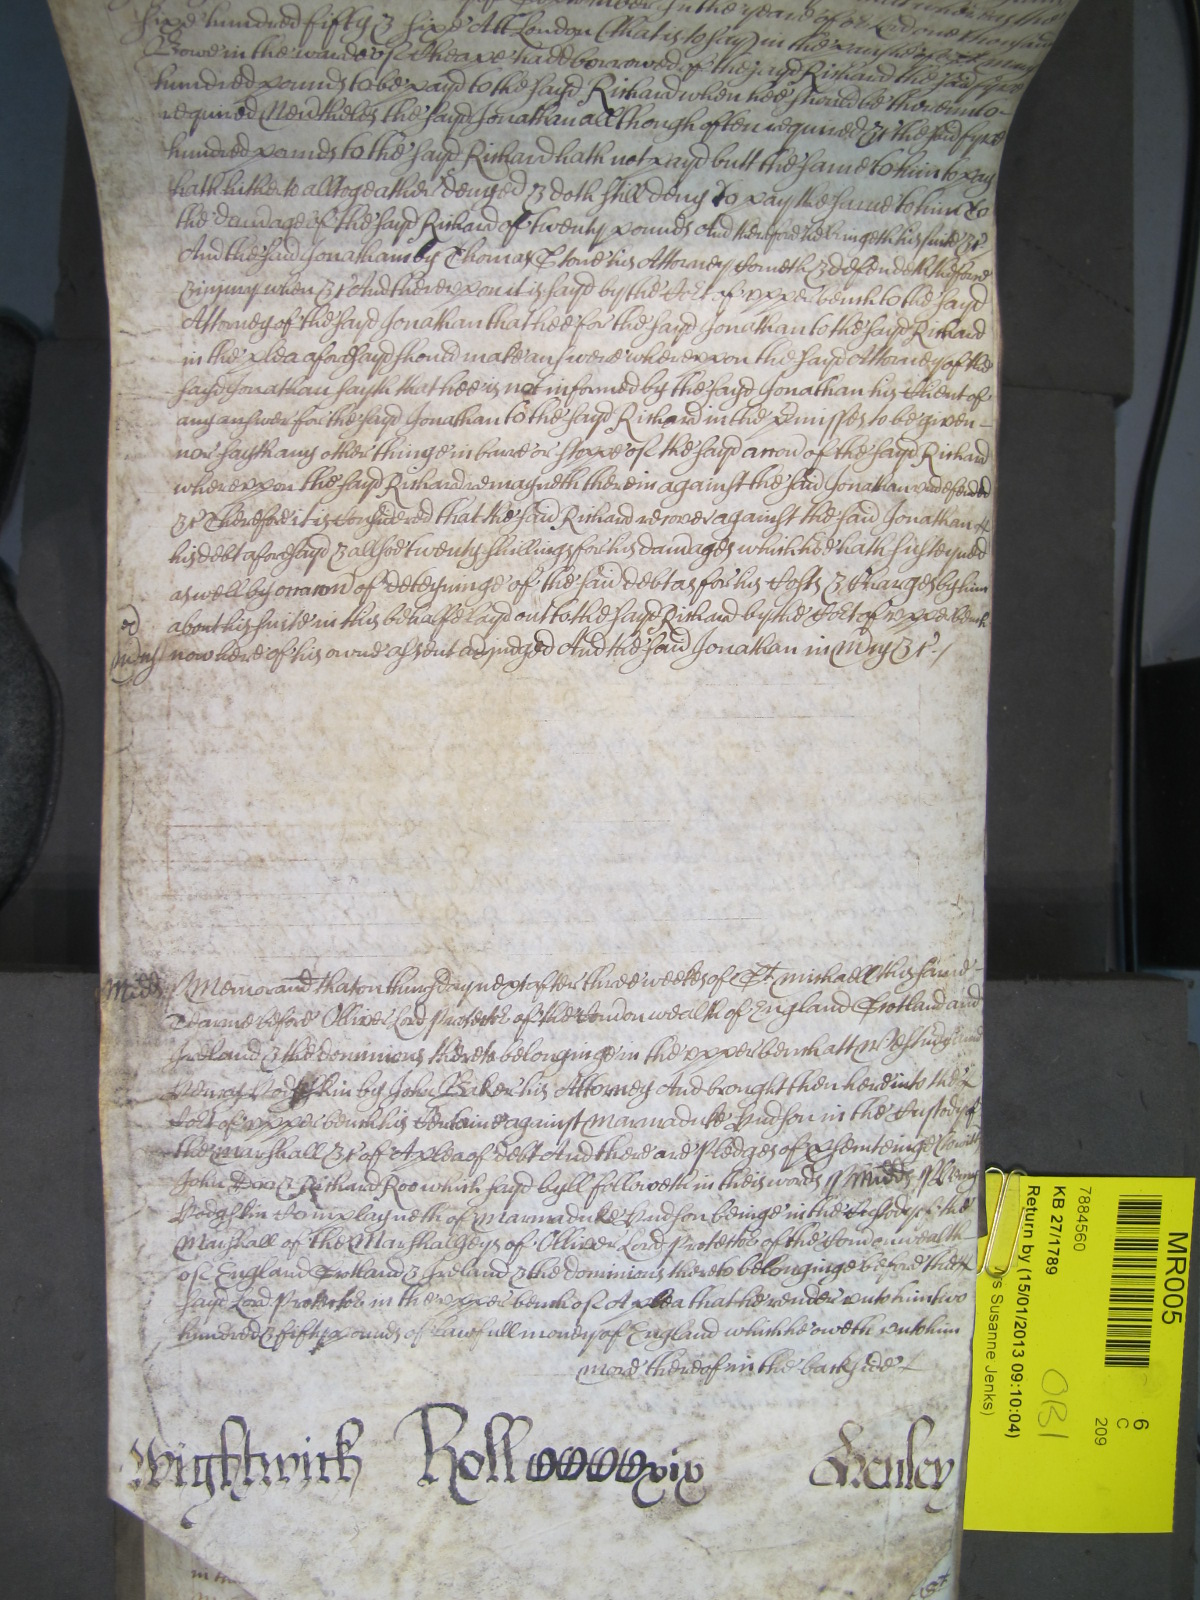 sixe hundred fifty & sixe Att London (that is to say) in the parishe of St Mary
Bowe in the warde of Cheape hadd borrowed of the sayd Richard the said fyve
hundred pounds to be payd to the sayd Richard when hee should be thereunto
required Nevertheles the sayd Jonathan allthough often required &c the said fyve
hundred pounds to the sayd Richard hath not payd butt the same to him to pay
hath hitherto alltogeather denyed & doth still deny To pay the same to him to
the damage of the sayd Richard of twenty pounds And therefore he bringeth his suite &c
And the said Jonathan by Thomas Stone his Attorney cometh & defendeth the force
& iniury when &c And thereuppon it is sayd by the Cort of upper bench to the sayd
Attorney of the sayd Jonathan that hee for the sayd Jonathan to the sayd Richard
in the plea aforesayd should make answere whereuppon the sayd Attorney of the
sayd Jonathan sayth that hee is not informed by the sayd Jonathan his Client of
any answer for the sayd Jonathan to the sayd Richard in the premisses to be given
nor sayth any other thinge in barre or stoppe of the sayd accon of the sayd Richard
whereuppon the sayd Richard remayneth therein against the said Jonathan undefended
&c Therefore it is considered that the said Richard recover against the said Jonathan
his debt aforesayd & allsoe twenty shillings for his damages which hee hath susteyned
aswell by occasion of deteyninge of the said debt as for his Costs & Charges by him
about his suite in this behalfe layd out to the sayd Richard by the Cort of upper bench
now here of his owne assent adiudged And the said Jonathan in mercy &c /
Midds Memorand that on thursday next after three weekes of St Michaell this same
Tearme before Oliver Lord Protector of the Comonwealth of England Scotland and
Ireland & the dominions thereto belonginge in the upper bench att Westm
by John his Attorney And brought then here into the
Cort of upper bench his Certaine against Marmaduke Hudson in the Custody of
the Marshall &c of A plea of debt And there are Pledges of prosecuteinge (to witt)
John Doo & Richard Roo which sayd byll followeth in theis words // Midds //
complayneth of Marmaduke Hudson beinge in the Custody of the
Marshall of the Marshalseys of Oliver Lord Protector of the Comonwealth
of England Scotland & Ireland & the dominions thereto belonginge before the
sayd Lord Protector in the upper bench of A plea that he render unto him two
hundred & fifty pounds of lawfull money of England which he oweth unto him
more thereof in the backside
Wightwick Roll xix Henley
MR005
6
C
209
7884560
KB 27/1789
Return by (15/01/2013 09:10:04)
Susanne Jenks)